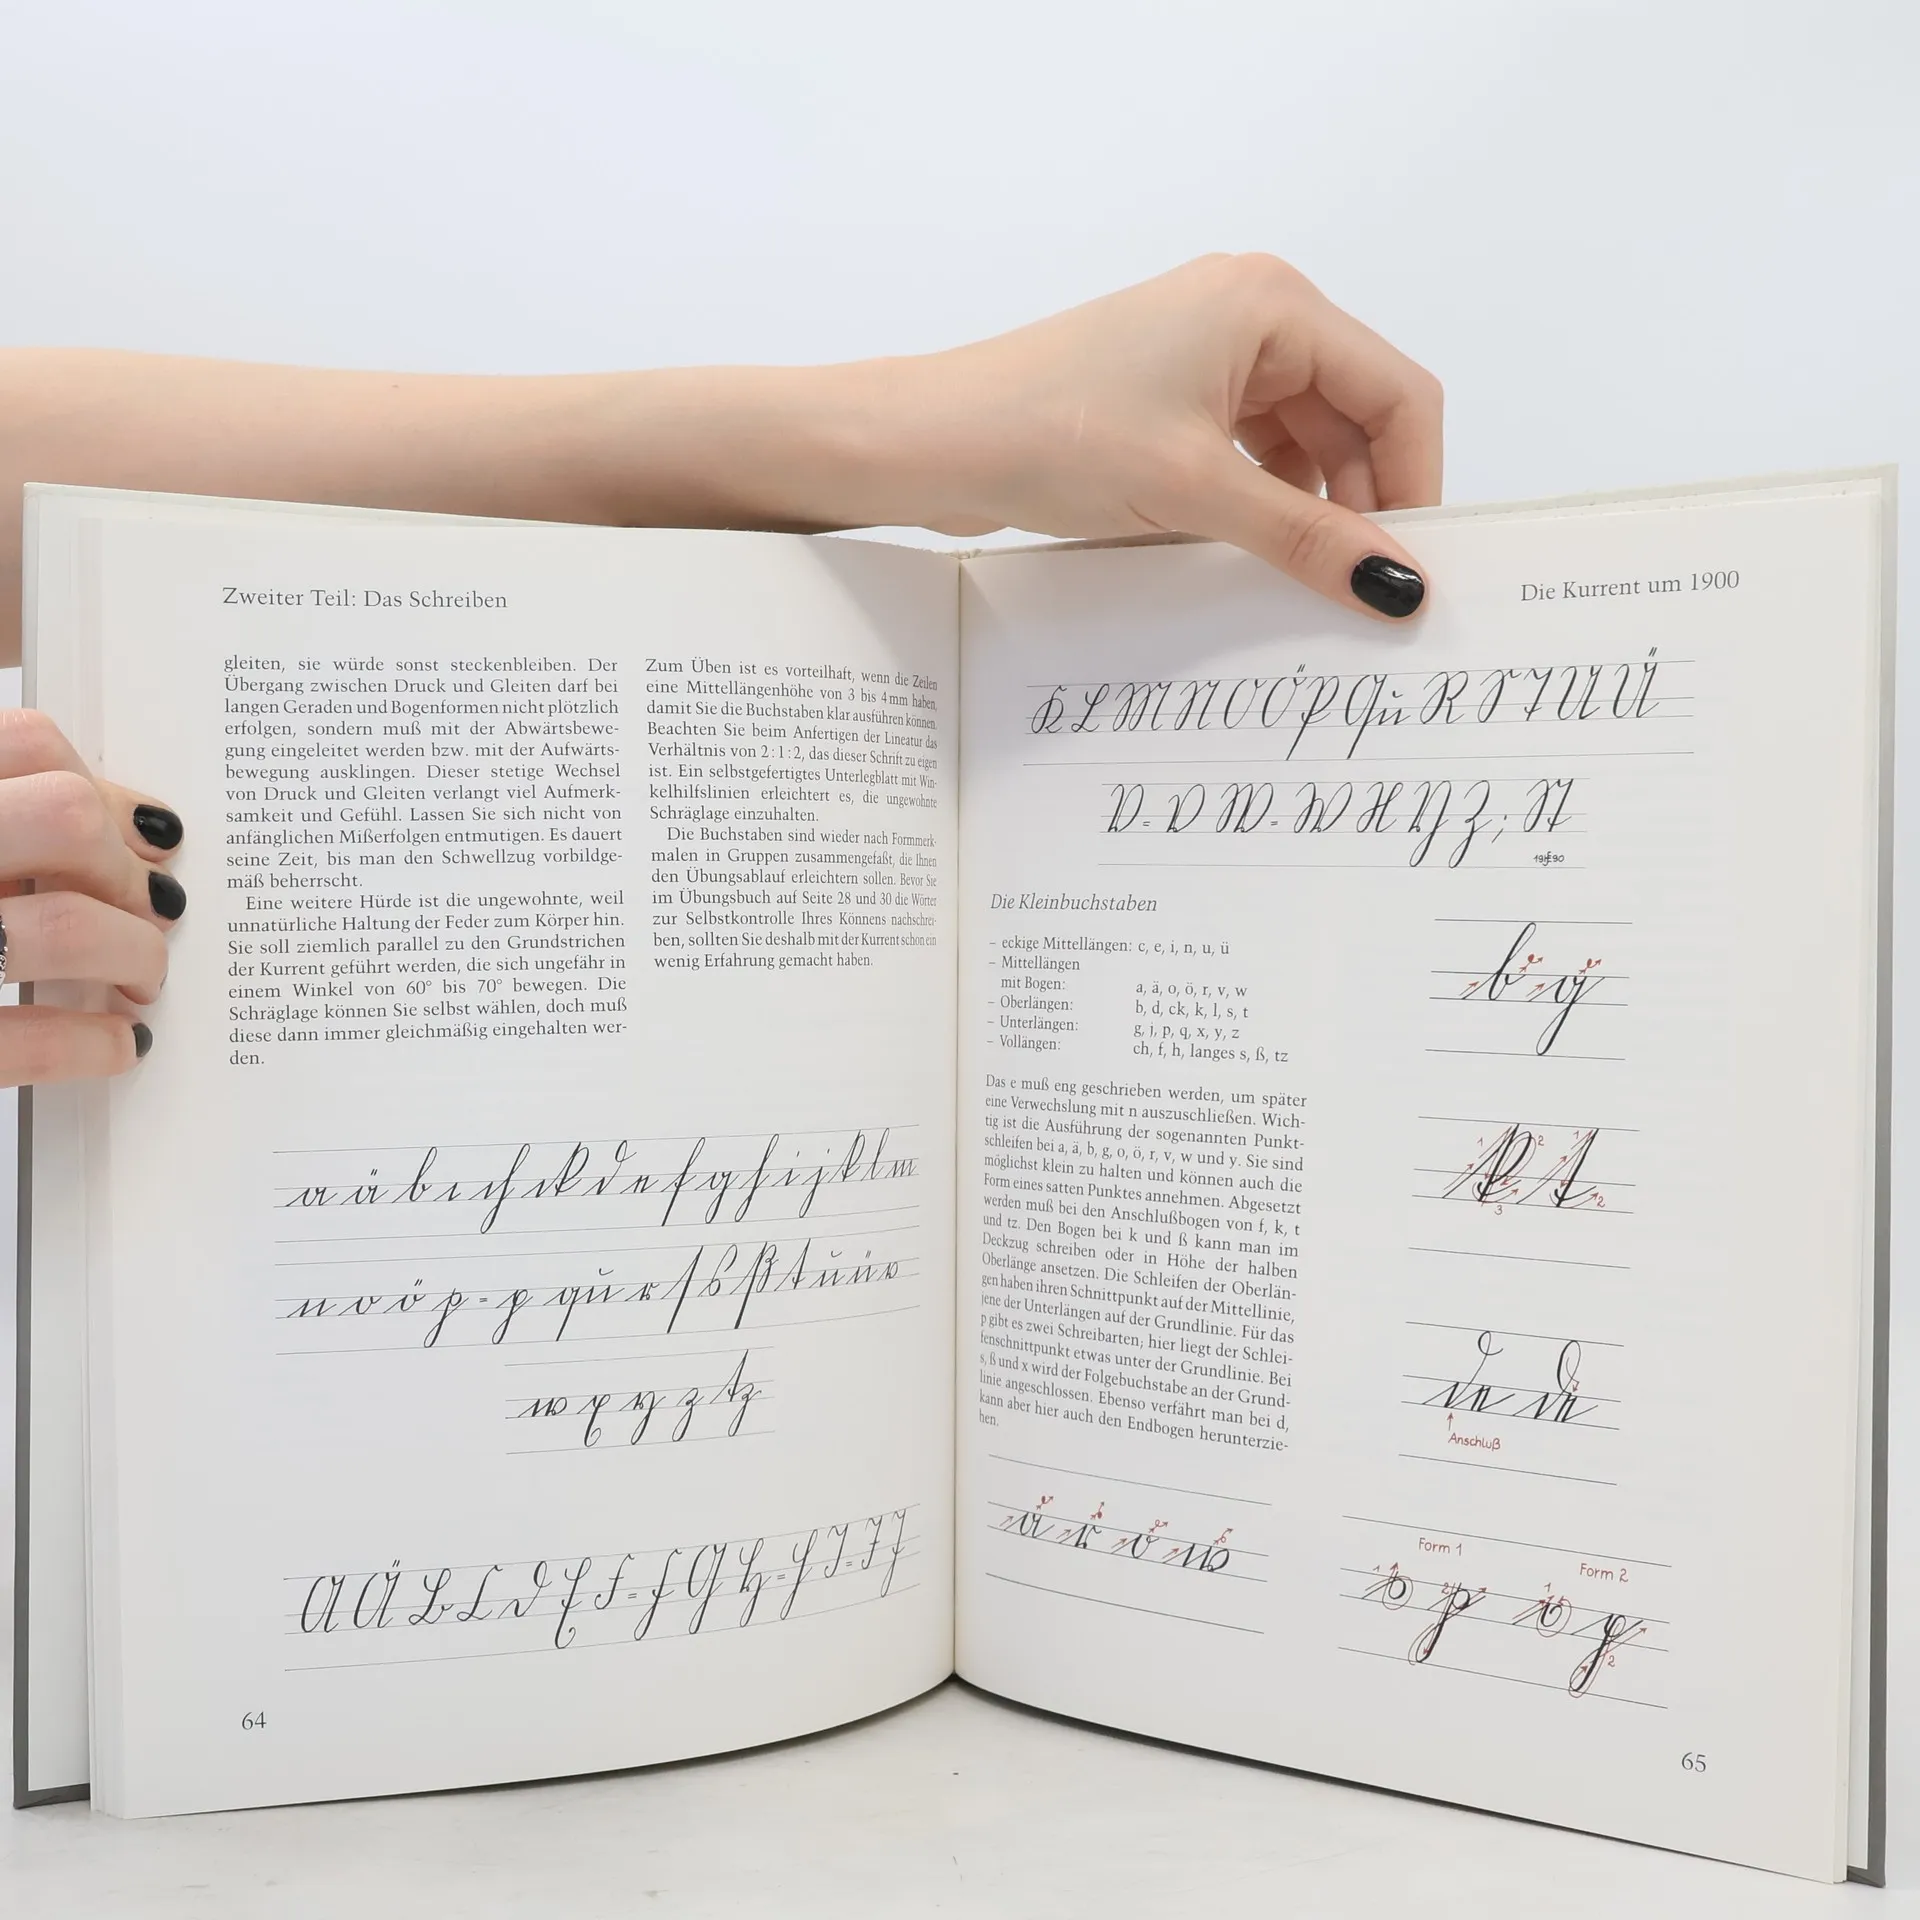 Zweiter Teil: Das Schreiben
gleiten, sie würde sonst steckenbleiben. Der
Übergang zwischen Druck und Gleiten darf bei
langen Geraden und Bogenformen nicht plötzlich
erfolgen, sondern muß mit der Abwärtsbewe-
gung eingeleitet werden bzw. mit der Aufwärts-
bewegung ausklingen. Dieser stetige Wechsel
von Druck und Gleiten verlangt viel Aufmerk-
samkeit und Gefühl. Lassen Sie sich nicht von
anfänglichen Mißerfolgen entmutigen. Es dauert
seine Zeit, bis man den Schwellzug vorbildge-
mäß beherrscht.
Eine weitere Hürde ist die ungewohnte, weil
unnatürliche Haltung der Feder zum Körper hin.
Sie soll ziemlich parallel zu den Grundstrichen
der Kurrent geführt werden, die sich ungefähr in
einem Winkel von 60° bis 70° bewegen. Die
Schräglage können Sie selbst wählen, doch muß
diese dann immer gleichmäßig eingehalten wer-
den.
Zum Üben ist es vorteilhaft, wenn die Zeilen
eine Mittellängenhöhe von 3 bis 4 mm haben,
damit Sie die Buchstaben klar ausführen können.
Beachten Sie beim Anfertigen der Lineatur das
Verhältnis von 2:1:2, das dieser Schrift zu eigen
ist. Ein selbstgefertigtes Unterlegblatt mit Win-
kelhilfslinien erleichtert es, die ungewohnte
Schräglage einzuhalten.
Die Buchstaben sind wieder nach Formmerk-
malen in Gruppen zusammengefaßt, die Ihnen
den Übungsablauf erleichtern sollen. Bevor Sie
im Übungsbuch auf Seite 28 und 30 die Wörter
zur Selbstkontrolle Ihres Könnens nachschrei-
ben, sollten Sie deshalb mit der Kurrent schon ein
wenig Erfahrung gemacht haben.
a ä b c ch ck d e f g h i j k l m
n o ö p = p qu r ſ s ß t u ü v
w x y z tz
A Ä B C D E F = F G H = H I = I J
64
Die Kurrent um 1900
K L M N O Ö P Qu R S T U Ü
V = V W = W X Y Z ; St
Die Kleinbuchstaben
– eckige Mittellängen: c, e, i, n, u, ü
– Mittellängen
mit Bogen: a, ä, o, ö, r, v, w
– Oberlängen: b, d, ck, k, l, s, t
– Unterlängen: g, j, p, q, x, y, z
– Vollängen: ch, f, h, langes s, ß, tz
Das e muß eng geschrieben werden, um später
eine Verwechslung mit n auszuschließen. Wich-
tig ist die Ausführung der sogenannten Punkt-
schleifen bei a, ä, b, g, o, ö, r, v, w und y. Sie sind
möglichst klein zu halten und können auch die
Form eines satten Punktes annehmen. Abgesetzt
werden muß bei den Anschlußbogen von f, k, t
und tz. Den Bogen bei k und ß kann man im
Deckzug schreiben oder in Höhe der halben
Oberlänge ansetzen. Die Schleifen der Oberlän-
gen haben ihren Schnittpunkt auf der Mittellinie,
jene der Unterlängen auf der Grundlinie. Für das
p gibt es zwei Schreibarten; hier liegt der Schlei-
fenschnittpunkt etwas unter der Grundlinie. Bei
s, ß und x wird der Folgebuchstabe an der Grund-
linie angeschlossen. Ebenso verfährt man bei d,
kann aber hier auch den Endbogen herunterzie-
hen.
b g
1 2 3 k 1 2 t
de de
Anschluß
a r v w
Form 1
Form 2
1 2 p 1 2 p
65